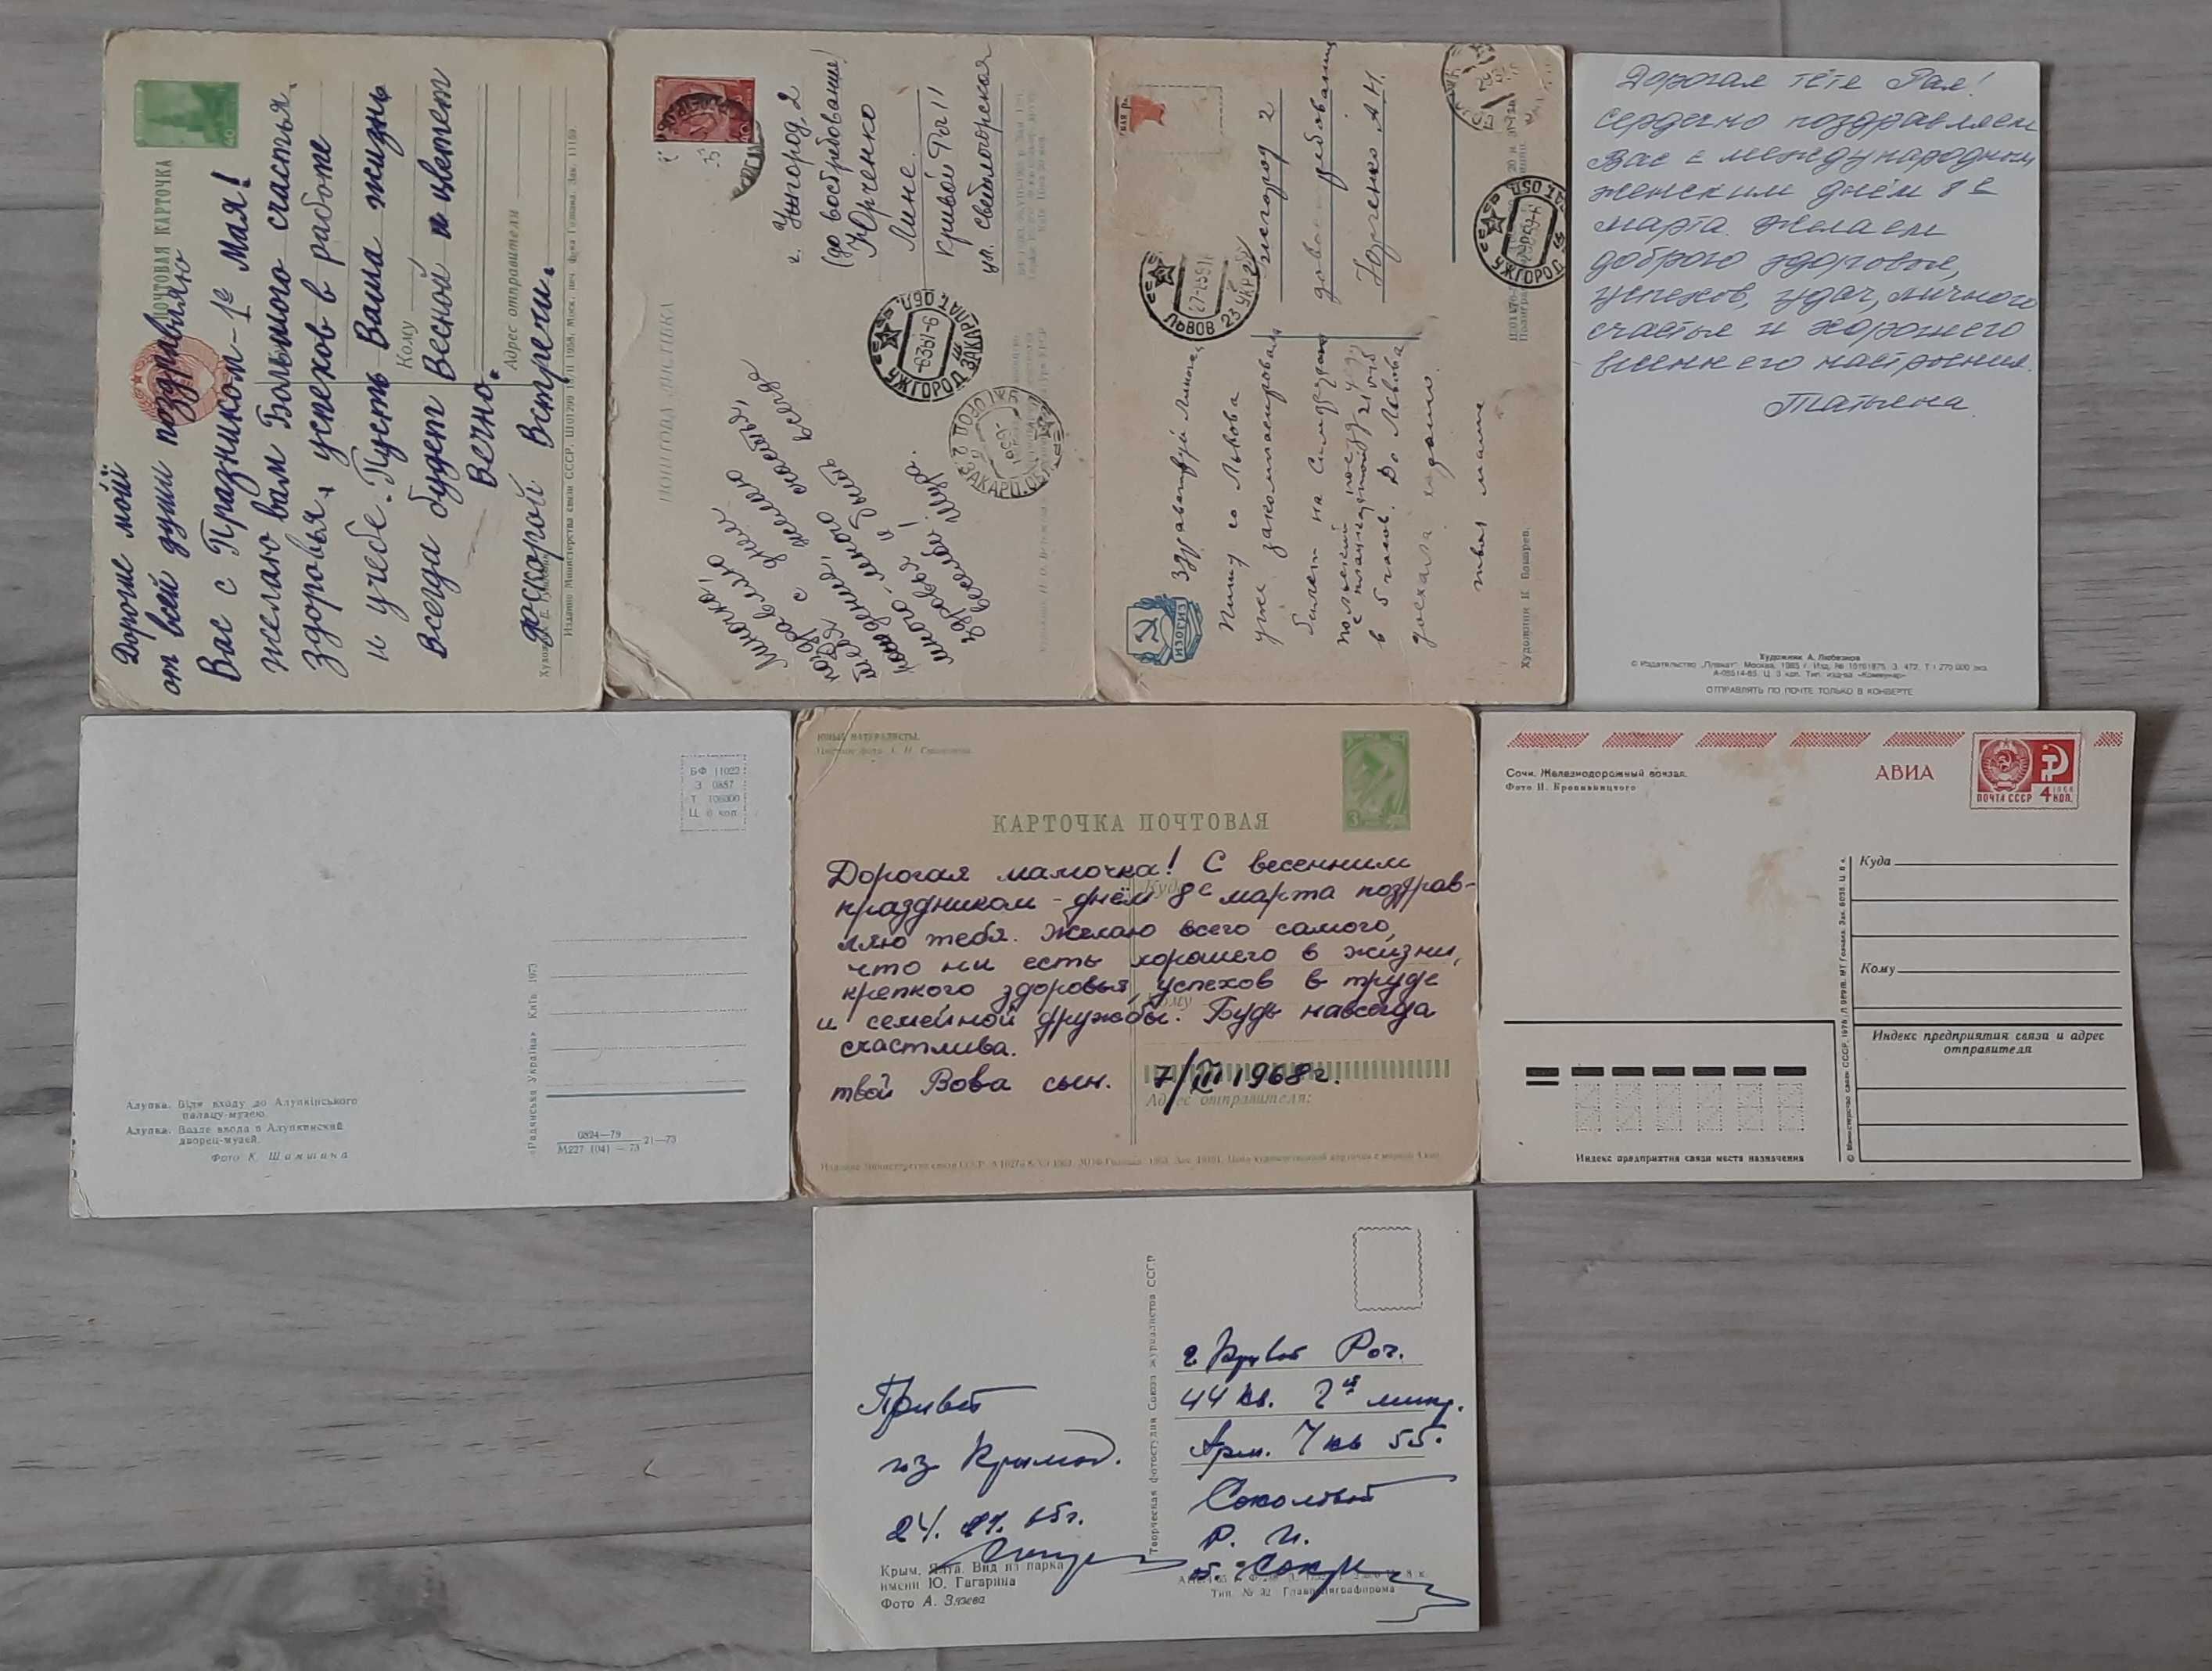 ПОЧТОВАЯ КАРТОЧКА
Дорогие мои
от всей души поздравляю
Вас с Праздником - 1е Мая!
желаю вам Большого счастья,
здоровья, успехов в работе
и учебе. Пусть Ваша жизнь
Всегда будет Весной и цветет
Вечно.
доскорой Встречи.
Кому
Адрес отправителя
г. Ужгород, 2
(до востребование)
Юрченко
Лине.
Кривой Рог 11
ул. Светлогорская
Линочка,
поздравляю
тебя с днем
рождения, желаю
много-много счастья,
здоровья и быть всегда
УЖГОРОД ЗАКАРПАТ. ОБЛ
ИЗОГИЗ
Здравствуй Линочка
Пишу со Львова
уже закомпасировала
билет на
в 5 часов. До Львова
доехала хорошо.
твоя мама
Ужгород 2
довостребования
Юрченко А.Н.
ЛЬВОВ 23 УКР
УЖГОРОД
Художник И Вашрев.
Дорогая тёте Рая!
Сердечно поздравляем
Вас с международным
женским днём 8е
марта. Желаем
доброго здоровья,
успехов, удач, личного
счастья и хорошего
весеннего настроения.
Татьяна.
Художник А. Любезнов
© Издательство „Плакат“. Москва. 1985 г.
ОТПРАВЛЯТЬ ПО ПОЧТЕ ТОЛЬКО В КОНВЕРТЕ
БФ 11022
З 0857
Ц 6 коп
Алупка. Біля входу до Алупкінського
палацу-музею.
Алупка. Возле входа в Алупкинский
дворец-музей.
Фото К. Шамшина
«Радянська Україна» Київ 1973
0824—79
М227 (04) — 73 21—73
ЮНЫЕ НАТУРАЛИСТЫ.
КАРТОЧКА ПОЧТОВАЯ
Дорогая мамочка! С весенним
праздником - днём 8е марта поздрав-
ляю тебя. Желаю всего самого,
что ни есть хорошего в жизни,
крепкого здоровья, успехов в труде
и семейной дружбы. Будь навсегда
счастлива.
твой Вова сын. 7/III 1968г.
Куда
Кому
Адрес отправителя:
Сочи. Железнодорожный вокзал.
Фото И. Кропивницкого
АВИА
ПОЧТА СССР 4 КОП.
Куда
Кому
Индекс предприятия связи и адрес
отправителя
Индекс предприятия связи места назначения
Привет
из Крыма.
Крым. Ялта. Вид из парка
имени Ю. Гагарина
Фото А. Зязева
Творческая фотостудия Союза журналистов СССР
г Кривой Рог.
44 кв. 2й микр.
7 кв 55.
Р. И.